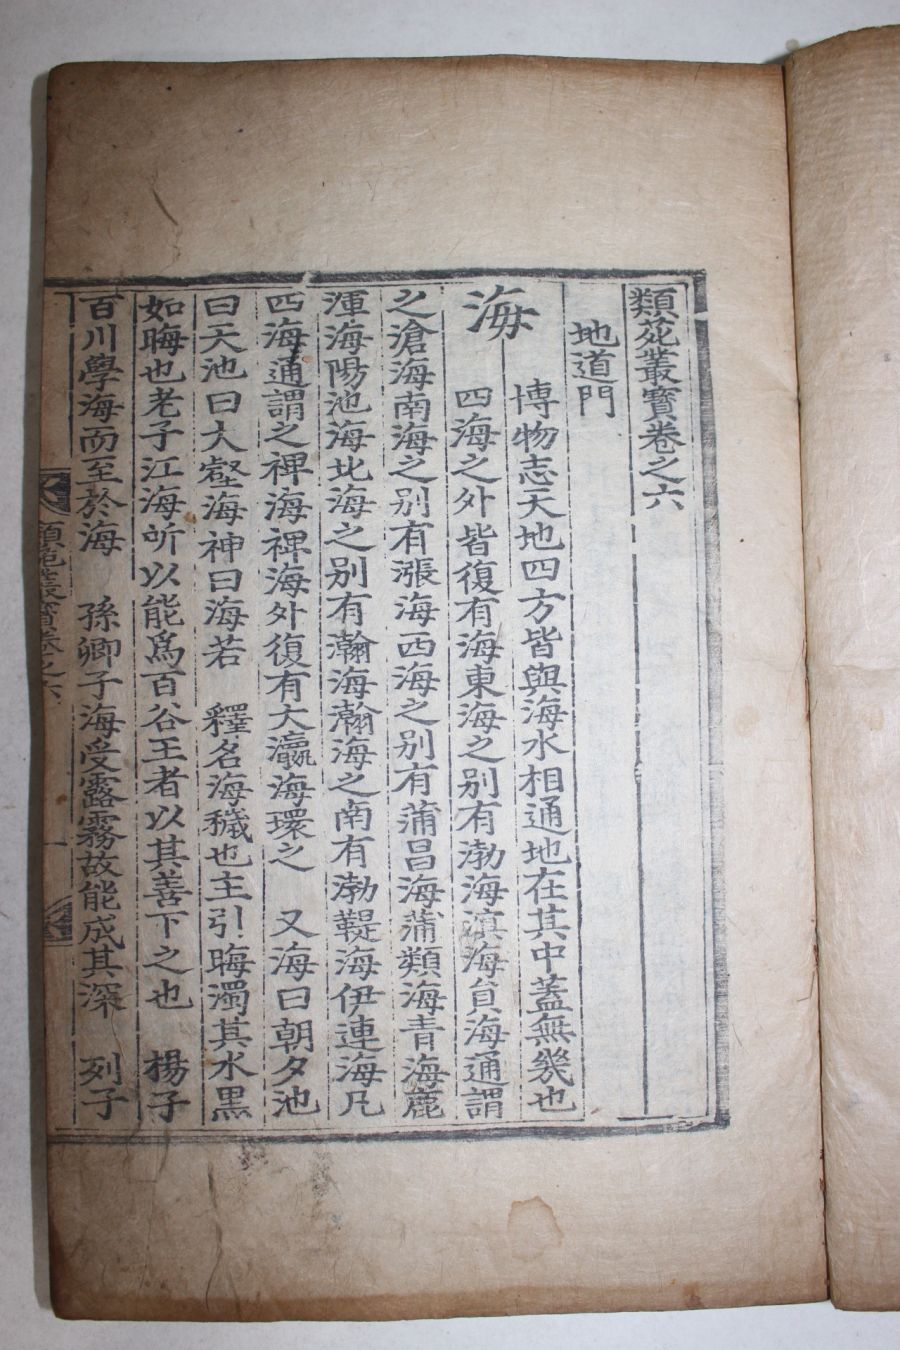 類苑叢寶卷之六
地道門
海
博物志天地四方皆與海水相通地在其中蓋無幾也
四海之外皆復有海東海之别有渤海溟海貟海通謂
之滄海南海之别有漲海西海之别有蒲昌海蒲類海青海鹿
渾海陽池海北海之别有瀚海瀚海之南有渤鞮海伊連海凡
四海通謂之裨海裨海外復有大瀛海環之　又海曰朝夕池
曰天池曰大壑海神曰海若　釋名海穢也主引晦濁其水黒
如晦也老子江海所以能爲百谷王者以其善下之也　楊子
百川學海而至於海　孫卿子海受露霧故能成其深　列子
類苑叢寶卷之六　一